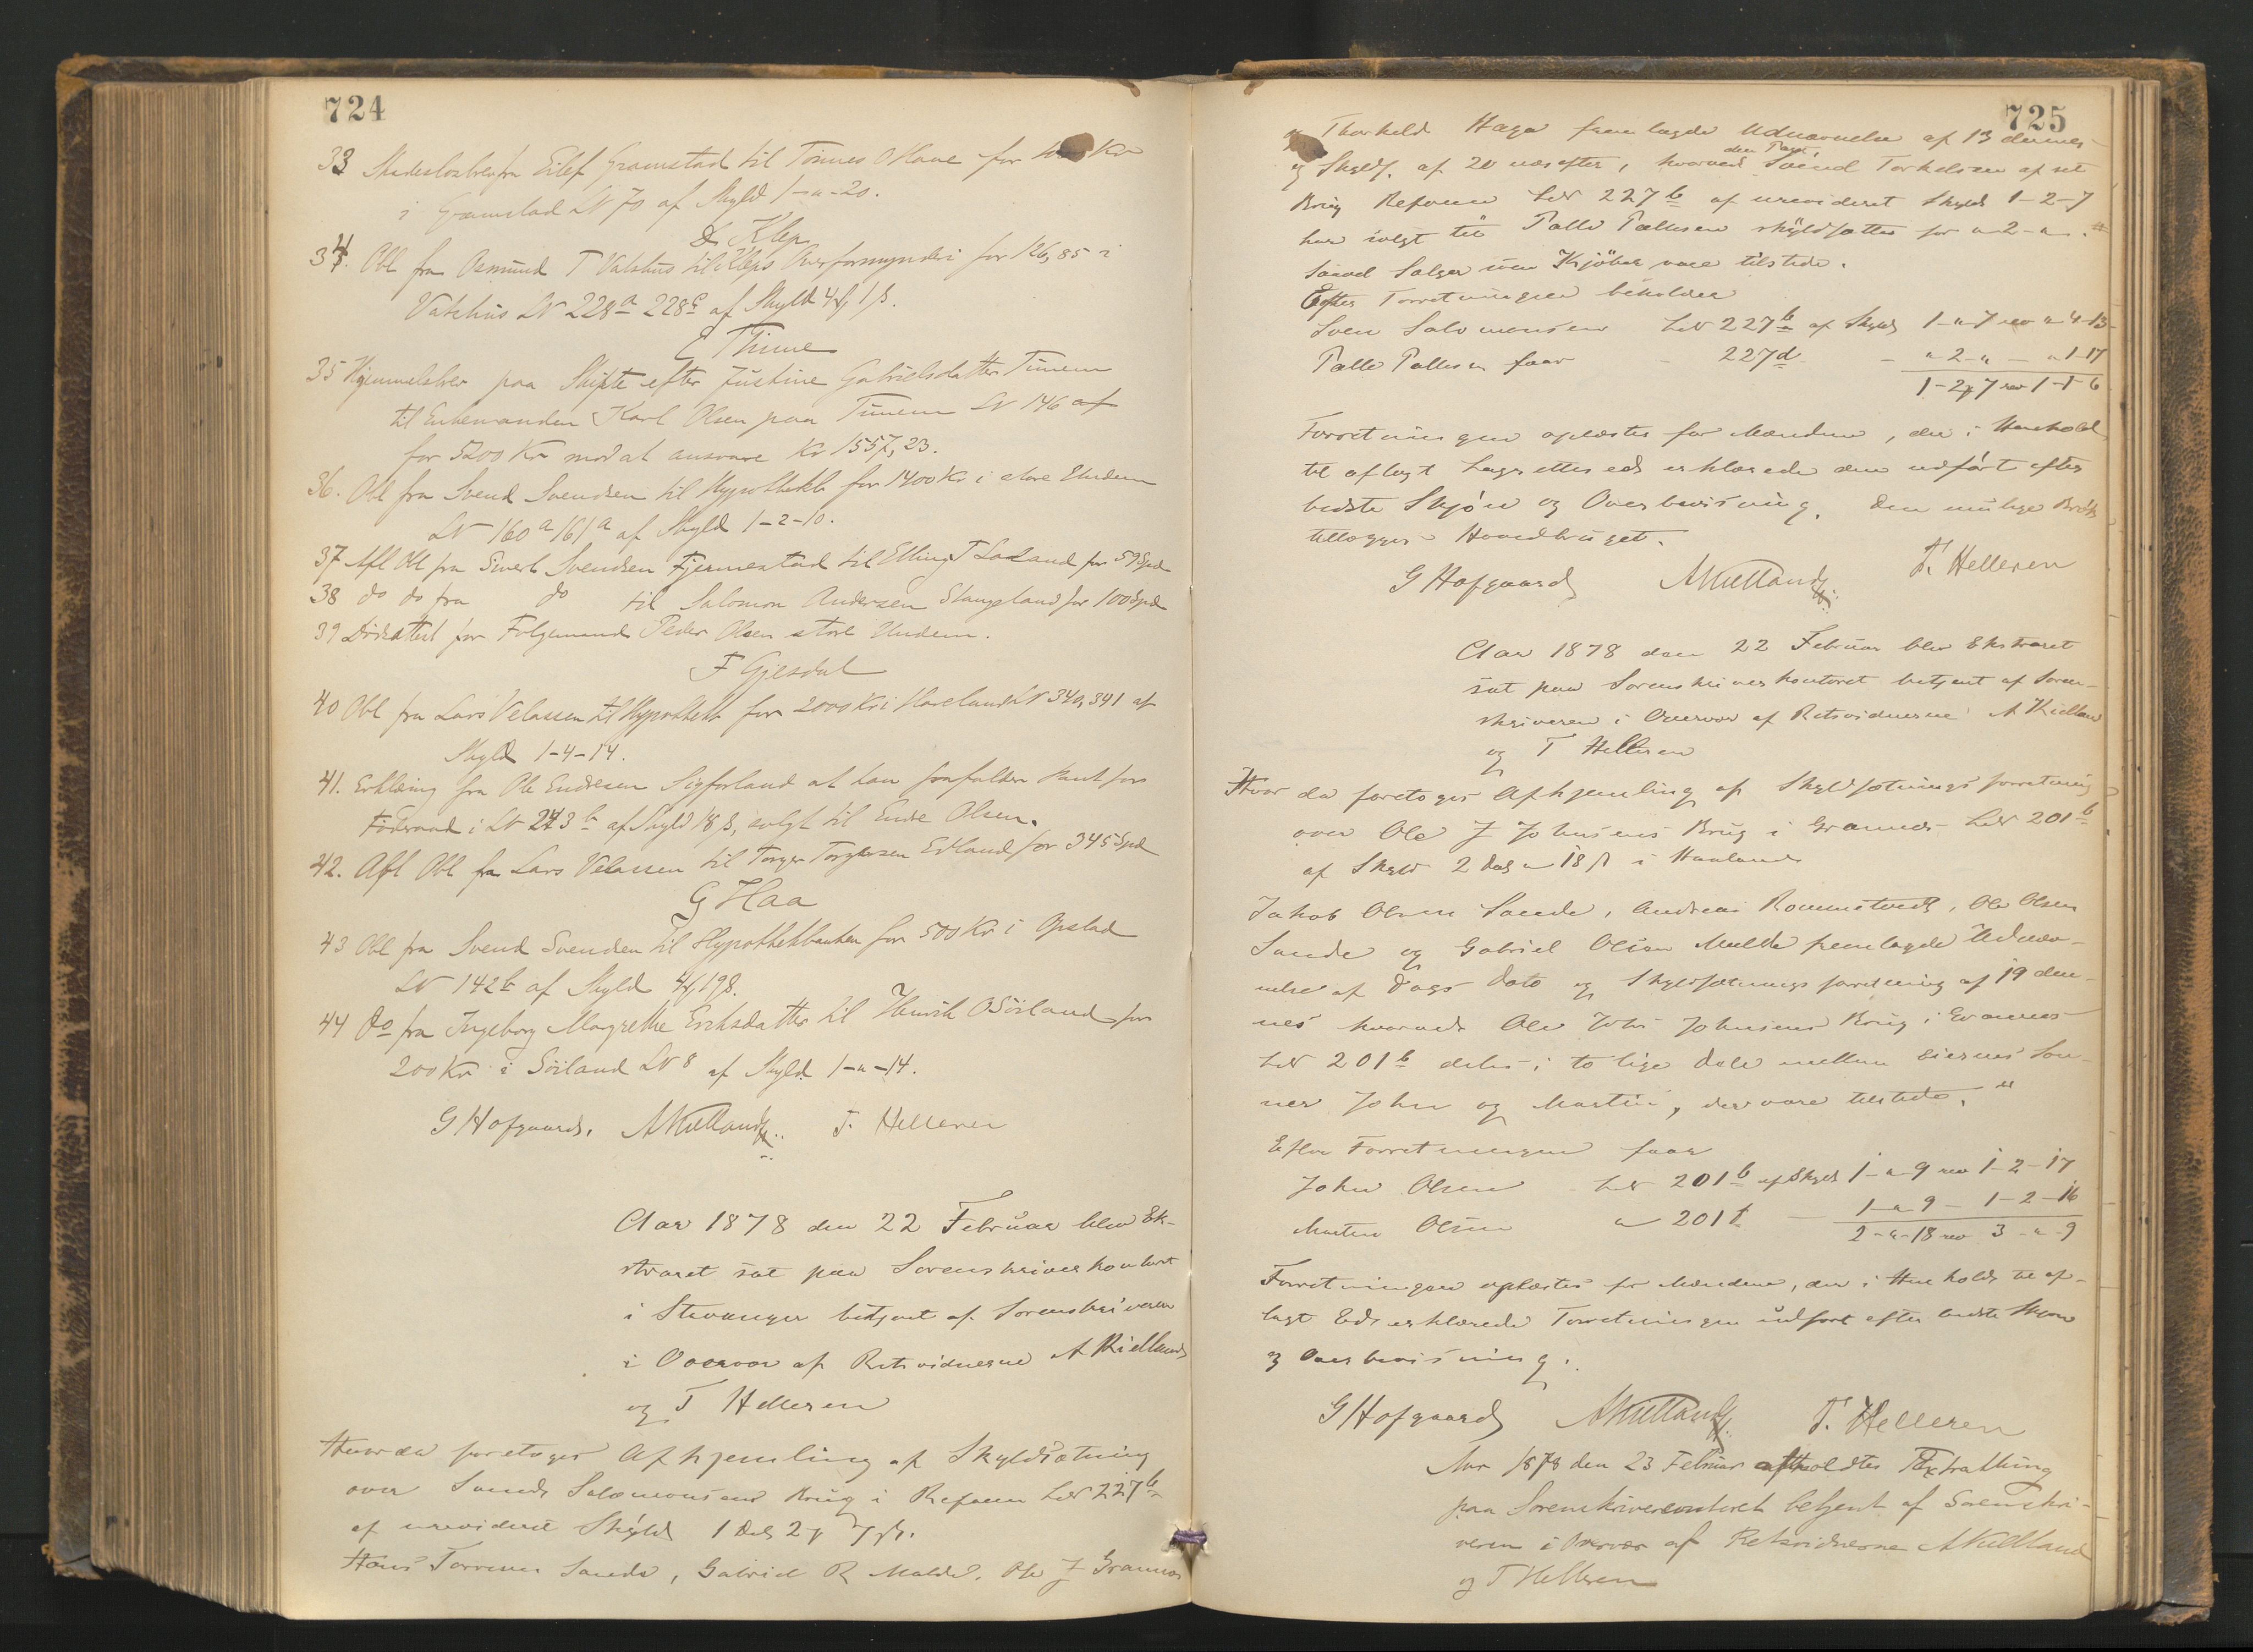 724
33 Skadesløsbrev fra Eilef Gramstad til Tønnes O Hove for Kr
i Gramstad LN 70 af Skyld 1-"-20.
D. Klep
34. Obl fra Asmund T Vatshus til Kleps Overformynderi for 126,85 i
Vatshus LN 228a 228c af Skyld 4 1 ß.
E Thime
35 Hjemmelsbrev paa Skifte efter Justine Gabrielsdatter Tunem
til Enkemanden Karl Olsen paa Tunem LN 146 af
for 5200 Kr mod at ansvare Kr 1557,23.
36. Obl fra Svend Svendsen til Hypothekb for 1400 Kr i store Undem
LN 160a 161a af Skyld 1-2-10.
37 Afl Obl fra Sivert Svendsen Fjermestad til Elling T Laland for 59 Spd
38 do do fra do til Salomon Andersen Stangeland for 100 Spd
39 Dødsattest for Folgemand Peder Olsen store Undem.
F Gjesdal
40 Obl fra Lars Velassen til Hypothekb for 2000 Kr i Haveland LN 340, 341 af
Skyld 1-4-14.
41. Erklæring fra Ole Endresen Sigforland at han frafalder Pant for
Føderaad i LN 243b af Skyld 18 ß, solgt til Endre Olsen.
42. Afl Obl fra Lars Velassen til Torger Torgersen Edland for 345 Spd
G Haa
43 Obl fra Svend Svendsen til Hypothekbanken for 500 Kr i Opstad
LN 142b af Skyld 4 19 ß.
44 do fra Ingeborg Margrethe Eriksdatter til Henrik O Søiland for
200 Kr i Søiland LN 8 af Skyld 1-"-14.
G Hofgaard. A Kielland T. Helleren
Aar 1878 den 22 Februar blev Ek-
straret sat paa Sorenskriverkontoret
i Stavanger betjent af Sorenskriveren
i Overvær af Retsvidnerne A Kielland
og T Helleren
Hvor da foretoges Afhjemling af Skyldsætning
over Svend Salomonsens Brug i Refsnæs LN 227b
af urevideret Skyld 1 Dal 2 7 ß.
Hans Torresen Sande, Gabriel R Malde, Ole J Grannes
725
og Thorkeld Haga fremlagde Udnævnelse af 13 dennes
og Skyldf. af 20 næsefter, hvorved Svend Torkelsen af sit
Brug Refsnes LN 227b af urevideret Skyld 1-2-7
har solgt til Palle Pallesen skyldsattes for "-2-".
Saavel Sælger som Kjøber vare tilstede.
Efter Forretningen beholder
Sven Salomonsen LN 227b af Skyld 1-"-7 rev "-4-13
Palle Pallesen faar - 227d - "-2-" - "-1-17
1-2-7 rev 1-1-6
Forretningen oplæstes for Mændene, der i Henhold
til aflagt Lagrettesed erklærede den udført efter
bedste Skjøn og Overbevisning. Den mulige Brøk
tillægges Hovedbruget.
G Hofgaard A Kielland T. Helleren
Aar 1878 den 22 Februar blev Ekstraret
sat paa Sorenskriverkontoret betjent af Soren-
skriveren i Overvær af Retsvidnerne A Kielland
og T Helleren
Hvor da foretoges Afhjemling af Skyldsætningsforretning
over Ole J Johnsens Brug i Grannes LN 201b
af Skyld 2 Dal " 18 ß i Haaland
Jakob Olsen Sande, Andreas Rommetvedt, Ole Olsen
Sande og Gabriel Olsen Malde fremlagde Udnæv-
nelse af Dags Dato og Skyldsætningsforretning af 19 den-
nes hvorved Ole Johs Johnsens Brug i Grannes
LN 201b deles i to lige Dele mellem Eierens Søn-
ner John og Martin, der vare tilstede.
Efter Forretningen faar
John Olsen LN 201b af Skyld 1-"-9 rev 1-2-17
Martin Olsen " 201f - 1-"-9 - 1-2-16
2-"-18 rev 3-"-9
Forretningen oplæstes for Mændene, der i Henhold til af-
lagt Ed erklærede Forretningen udført efter bedste Skjøn
og Overbevisning.
G Hofgaard A Kielland T. Helleren
Aar 1878 den 23 Februar afholdtes Extrathing
paa Sorenskrivercontoret betjent af Sorenskri-
veren i Overvær af Retsvidnerne A Kielland
og T Helleren